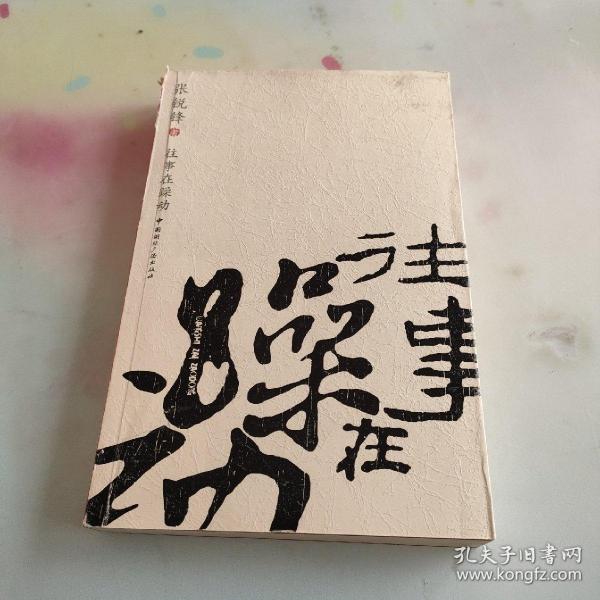 张锐锋 著
往事在躁动
中国国际广播出版社
往事
在
躁
动
孔夫子旧书网
www.kongfz.com